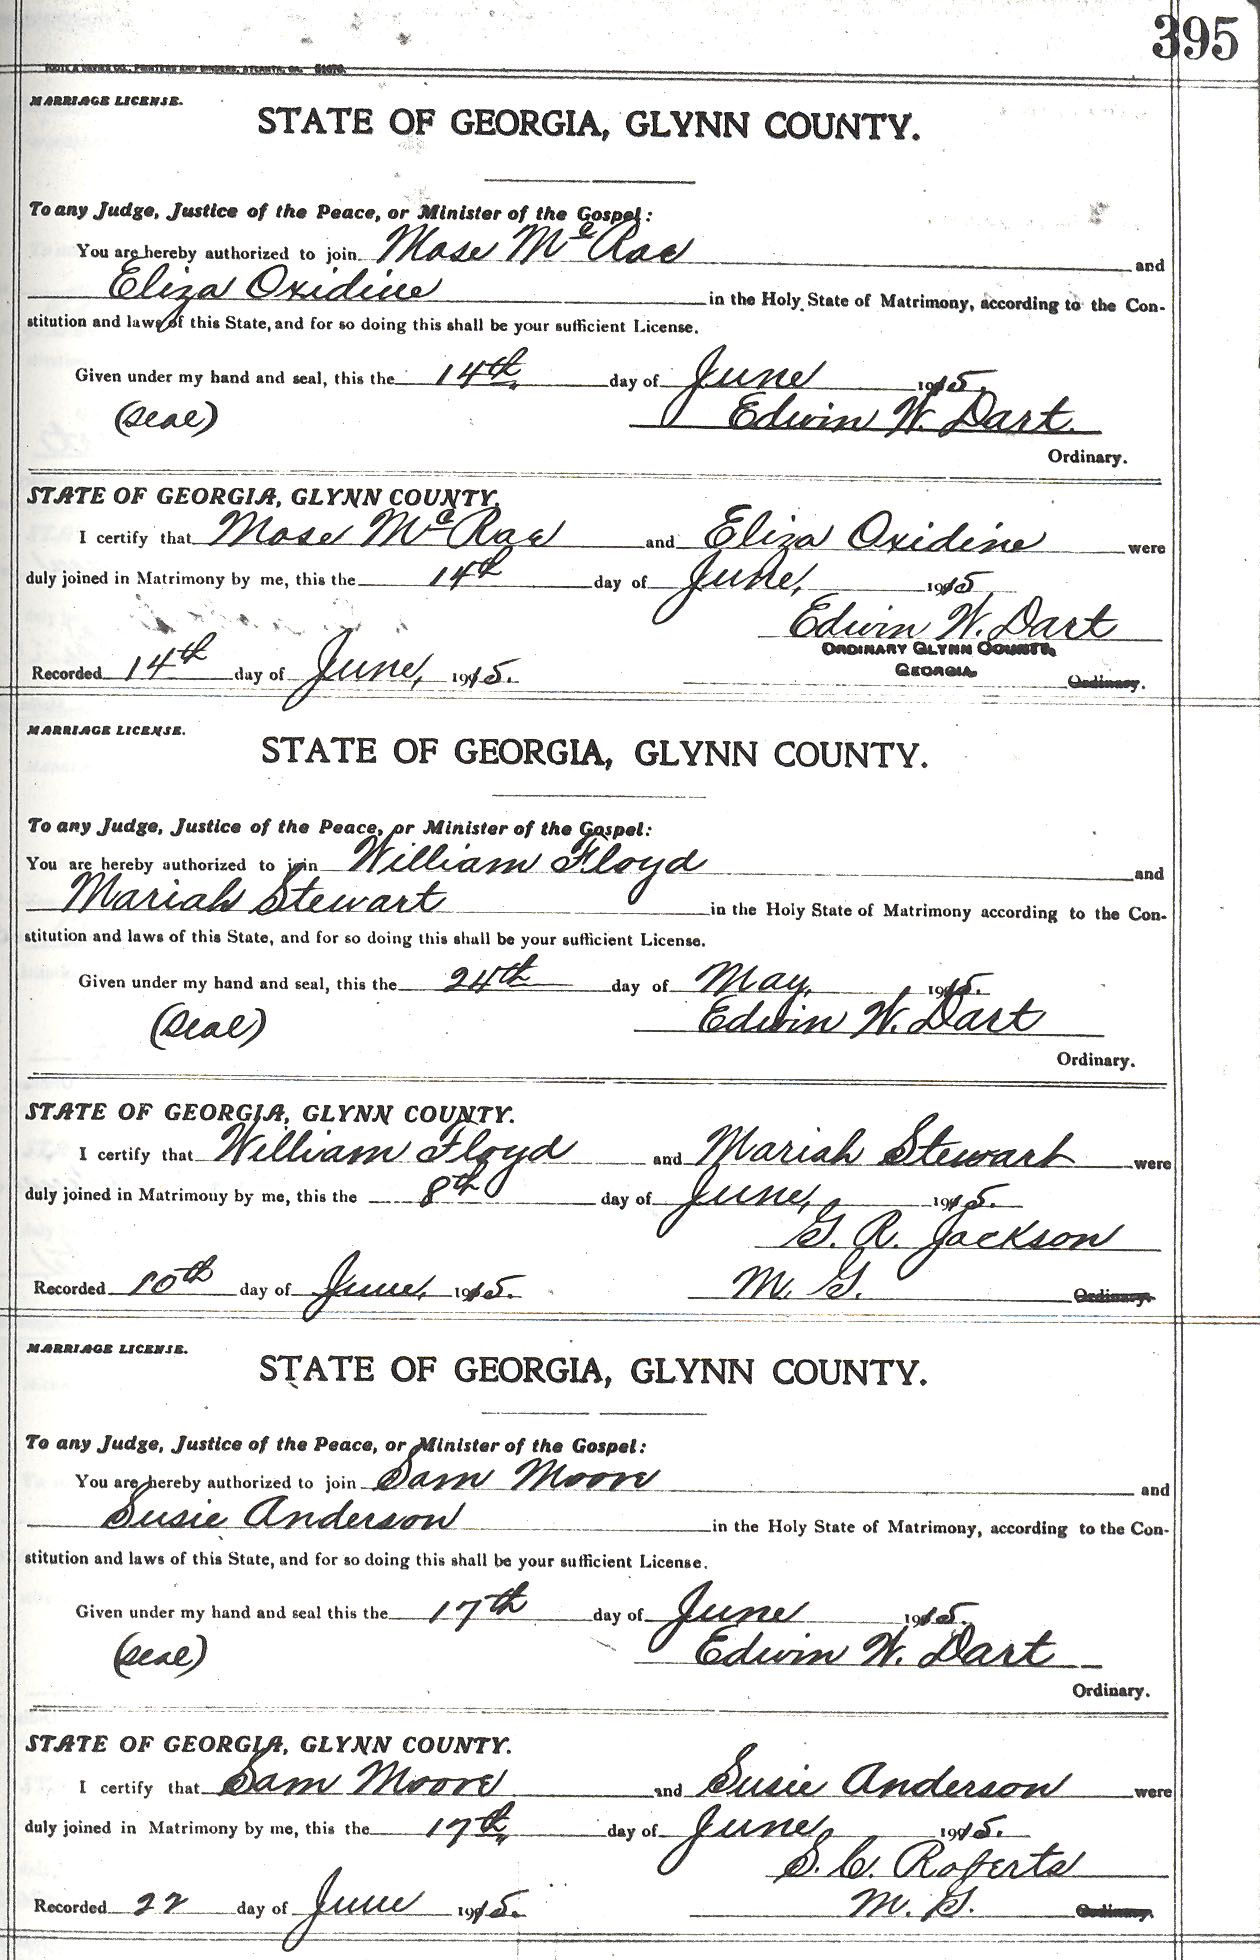 395
FOOTE & DAVIES CO., PRINTERS AND BINDERS, ATLANTA, GA.
MARRIAGE LICENSE.
STATE OF GEORGIA, GLYNN COUNTY.
To any Judge, Justice of the Peace, or Minister of the Gospel:
You are hereby authorized to join Mose McRae and
Eliza Oxidine in the Holy State of Matrimony, according to the Con-
stitution and laws of this State, and for so doing this shall be your sufficient License.
Given under my hand and seal, this the 14th day of June 1915.
(Seal) Edwin W. Dart.
Ordinary.
STATE OF GEORGIA, GLYNN COUNTY.
I certify that Mose McRae and Eliza Oxidine were
duly joined in Matrimony by me, this the 14th day of June, 1915
Edwin W. Dart
ORDINARY GLYNN COUNTY,
GEORGIA.
Recorded 14th day of June, 1915. Ordinary.
MARRIAGE LICENSE.
STATE OF GEORGIA, GLYNN COUNTY.
To any Judge, Justice of the Peace, or Minister of the Gospel:
You are hereby authorized to join William Floyd and
Mariah Stewart in the Holy State of Matrimony according to the Con-
stitution and laws of this State, and for so doing this shall be your sufficient License.
Given under my hand and seal, this the 24th day of May, 1915.
(Seal) Edwin W. Dart
Ordinary.
STATE OF GEORGIA, GLYNN COUNTY.
I certify that William Floyd and Mariah Stewart were
duly joined in Matrimony by me, this the 8th day of June, 1915.
G. R. Jackson
Recorded 10th day of June, 1915. M. G. Ordinary.
MARRIAGE LICENSE.
STATE OF GEORGIA, GLYNN COUNTY.
To any Judge, Justice of the Peace, or Minister of the Gospel:
You are hereby authorized to join Sam Moore and
Susie Anderson in the Holy State of Matrimony, according to the Con-
stitution and laws of this State, and for so doing this shall be your sufficient License.
Given under my hand and seal this the 17th day of June 1915.
(Seal) Edwin W. Dart
Ordinary.
STATE OF GEORGIA, GLYNN COUNTY.
I certify that Sam Moore and Susie Anderson were
duly joined in Matrimony by me, this the 17th, day of June, 1915.
S. C. Roferts
Recorded 22 day of June 1915. M. G. Ordinary.